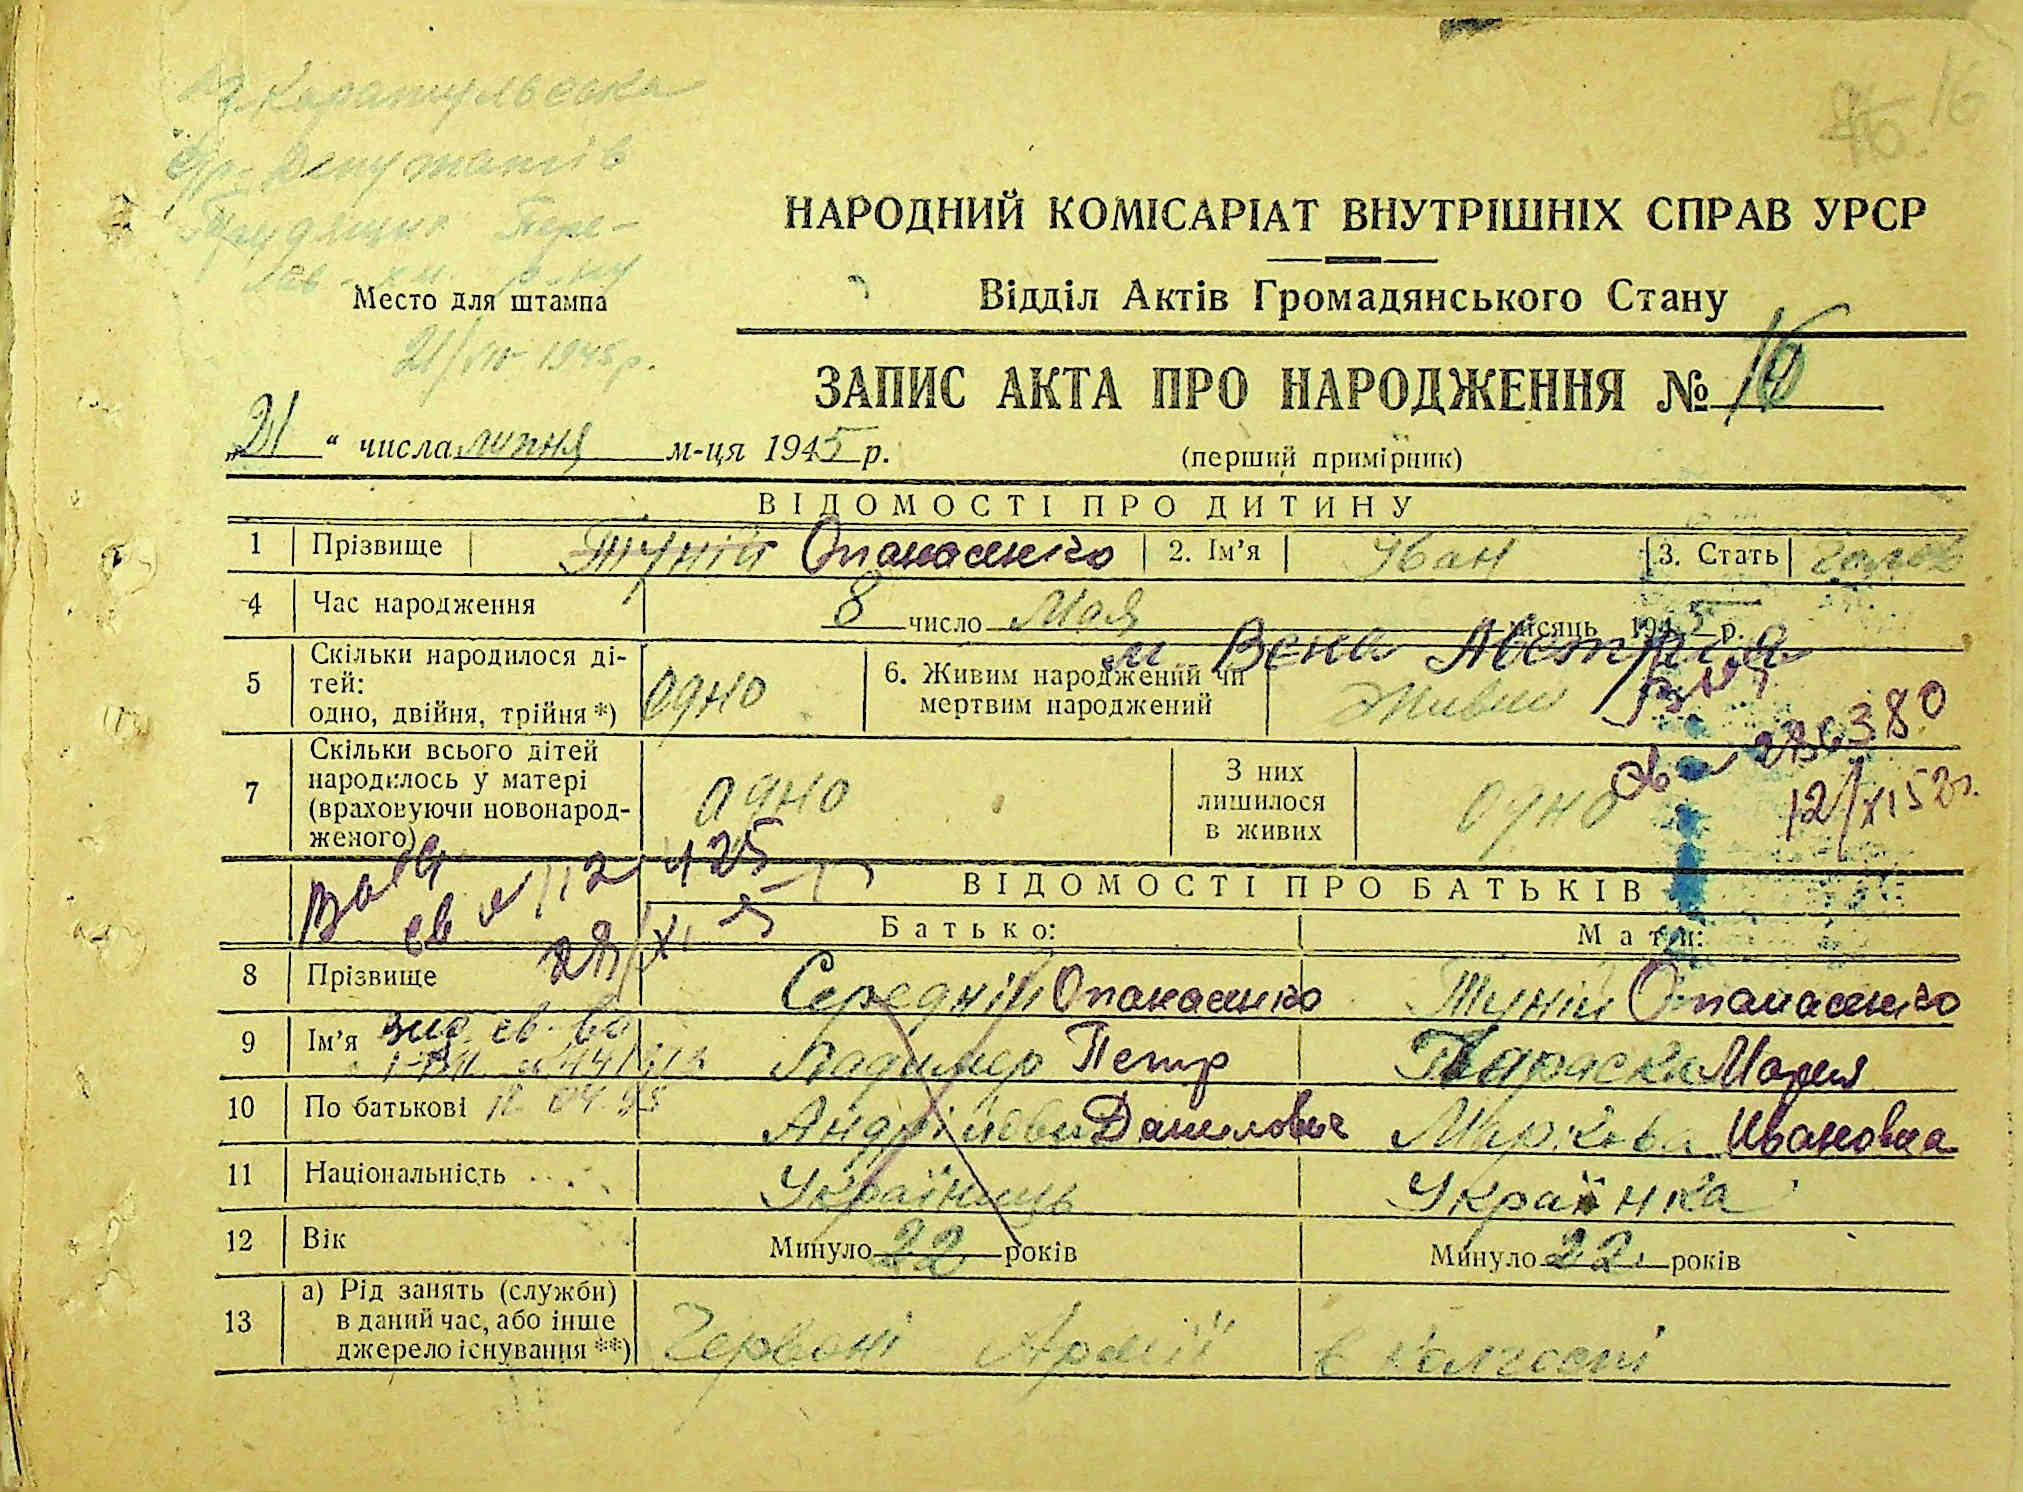 Каратульська
депутатів
Трудящих Пере-
Место для штампа
21/VII 1945 р.
16
НАРОДНИЙ КОМІСАРІАТ ВНУТРІШНІХ СПРАВ УРСР
Відділ Актів Громадянського Стану
ЗАПИС АКТА ПРО НАРОДЖЕННЯ № 16
„21“ числа липня м-ця 1945 р.
(перший примірник)
ВІДОМОСТІ ПРО ДИТИНУ
1 Прізвище Туній Опанасенко 2. Ім'я Іван 3. Стать
4 Час народження 8 число Мая місяць 1945 р.
м Вена Австрія
5 Скільки народилося ді-
тей:
одно, двійня, трійня *) одно 6. Живим народжений чи
мертвим народжений Живим
7 Скільки всього дітей
народилось у матері
(враховуючи новонарод-
женого) одно З них
лишилося
в живих одно
12/XI 52г.
ВІДОМОСТІ ПРО БАТЬКІВ
Батько: Мати:
8 Прізвище Середній Опанасенко Туній Опанасенко
9 Ім'я Владимер Петр Параска Мария
10 По батькові Андрійович Данилович Маркова Ивановна
11 Національність Українець Українка
12 Вік Минуло 22 років Минуло 22 років
13 а) Рід занять (служби)
в даний час, або інше
джерело існування **) Червоні Армії в колгоспі